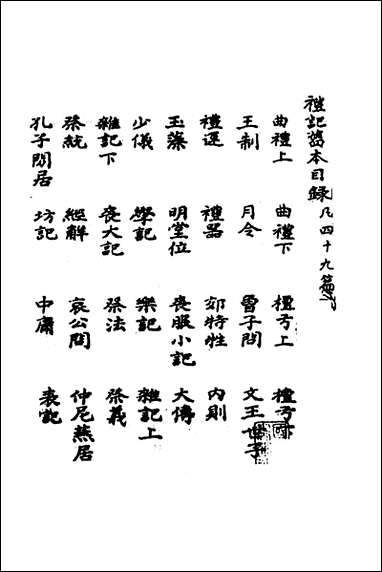 禮記舊本目錄凡四十九篇
曲禮上 曲禮下 檀弓上 檀弓
王制 月令 曾子問 文王世子
禮運 禮器 郊特牲 內則
玉藻 明堂位 喪服小記 大傳
少儀 學記 樂記 雜記上
雜記下 喪大記 祭法 祭義
祭統 經解 哀公問 仲尼燕居
孔子閒居 坊記 中庸 表記